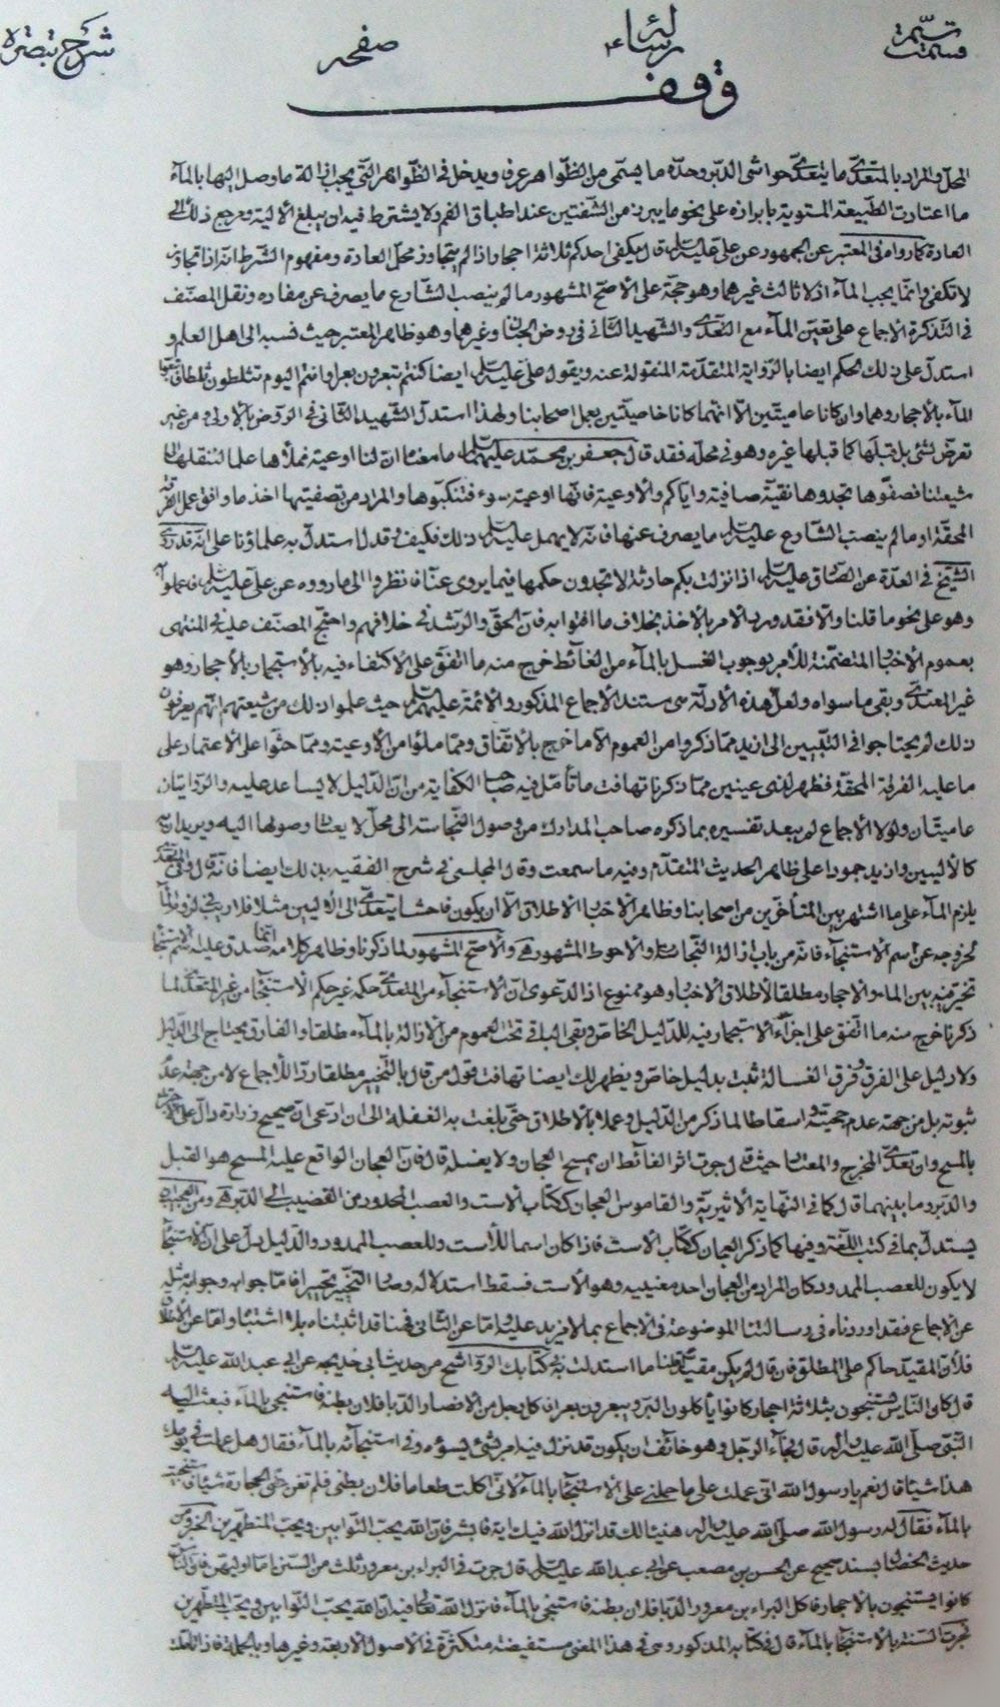 شرح تبصرة صفحه رساله
وقف
المحل والمراد بالمتعدى ما يتعدى حواشى الدبر وحده ما يسمى من الظواهر عرفا ويدخل فى الظواهر التى يجب ازالة ما وصل اليها بالماء
ما اعتادت الطبيعة المستوية بابرازه على نحو ما يبرز من الشفتين عند اطباق الفم ولا يشترط فيه ان يبلغ الالية ومرجع ذلك الى
العادة كما رواه فى المعتبر عن الجمهور عن على عليه السلم قال يكفى احدكم ثلاثة احجار اذا لم يتجاوز محل العادة ومفهوم الشرط انه اذا تجاوز
لا تكفى وانما يجب الماء اذ لا ثالث غيرهما وهو حجة على الاصح المشهور ما لم ينصب الشارع ما يصرف عن مفاده ونقل المصنف
فى التذكرة الاجماع على تعين الماء مع التعدى والشهيد الثانى فى روض الجنان وغيرهما وهو ظاهر المعتبر حيث نسبه الى اهل العلم و
استدل على ذلك الحكم ايضا بالرواية المتقدمة المنقولة عنه وبقول على عليه السلم ايضا كنتم تبعرون بعرا وانتم اليوم تثلطون ثلطا فاتبعوا
الماء بالاحجار وهما وان كانا عاميتين الا انهما كانا خاصيتين بعمل اصحابنا ولهذا استدل الشهيد الثانى فى الروض بالاولى من غير
تعرض لشئ بل قبلها كما قبلها غيره وهو فى محله فقد قال جعفر بن محمد عليهما السلم ما معناه ان لنا اوعية نملأها علما لننقلها الى
شيعتنا فصفوها تجدوها نقية صافية واياكم والاوعية فانها اوعية سوء فتنكبوها والمراد من تصفيتها اخذ ما وافق عمل الفرقة
المحقة او ما لم ينصب الشارع عليه السلم ما يصرف عنها فانه لا يهمل عليه السلم ذلك فكيف وقد استدل به علماؤنا على انه قد روى
الشيخ فى العدة عن الصادق عليه السلم اذا نزلت بكم حادثة لا تجدون حكمها فيما يروى عنا فانظروا الى ما رووه عن على عليه السلم فاعملوا به
وهو على نحو ما قلنا والا فقد ورد الامر بالاخذ بخلاف ما افتوا به فان الحق والرشد فى خلافهم واحتج المصنف عليه فى المنتهى
بعموم الاخبار المتضمنة للامر بوجوب الغسل بالماء من الغائط خرج منه ما اتفق على الاكتفاء فيه بالاستجمار بالاحجار وهو
غير المتعدى وبقى ما سواه ولعل هذه الادلة هى مستند الاجماع المذكور والائمة عليهم السلم حيث علموا ذلك من شيعتهم انهم يعرفون
ذلك لم يحتاجوا فى التبيين الى ازيد مما ذكروا من العموم الا ما خرج بالاتفاق ومما ملؤا من الاوعية ومما حثوا على الاعتماد على
ما عليه الفرقة المحقة فظهر لذى عينين مما ذكرنا تهافت ما تأمل فيه صاحب الكفاية من ان الدليل لا يساعد عليه والروايتان
عاميتان ولولا الاجماع لم يبعد تفسيره بما ذكره صاحب المدارك من وصول النجاسة الى محل لا يعتاد وصولها اليه ويريدان به
كالاليين وازيد جمودا على ظاهر الحديث المتقدم وفيه ما سمعت وقال المجلسى فى شرح الفقيه بذلك ايضا فانه قال وفى المتعدى
يلزم الماء على ما اشتهر بين المتأخرين من اصحابنا وظاهر الاخبار الاطلاق الا ان يكون فاحشا يتعدى الى الاليين مثلا فلا ريب فى لزوم الماء
لخروجه عن اسم الاستنجاء فانه من باب ازالة النجاسات والاحوط المشهور وهى والاصح المشهور لما ذكرنا وظاهر كلامه انما صدق عليه الاستنجاء
تخير فيه بين الماء والاحجار مطلقا لاطلاق الاخبار وهو ممنوع اذ الدعوى ان الاستنجاء من المتعدى حكمه غير حكم الاستنجاء من غير المتعدى لما
ذكرنا خرج منه ما اتفق على اجزاء الاستجمار فيه للدليل الخاص وبقى الباقى تحت العموم من الازالة بالماء مطلقا والفارق يحتاج الى الدليل
ولا دليل على الفرق وفرق الغسالة ثبت بدليل خاص ويظهر لك ايضا تهافت قول من قال بالتخيير مطلقا ردا للاجماع لا من جهة عدم
ثبوته بل من جهة عدم حجيته واسقاطا لما ذكر من الدليل وعملا بالاطلاق حتى بلغت به الغفلة الى ان ادعى ان صحيح زرارة دال على
بالمسح وان تعدى المخرج والمعتاد حيث قال جرت اثر الغائط ان يمسح العجان ولا يغسله قال فان العجان الواقع عليه المسح هو القبل
والدبر وما بينهما قال كما فى النهاية الاثيرية والقاموس العجان ككتاب الاست والعصب المحدود من القضيب الى الدبر هى ومن العجب ان
يستدل بما فى كتب اللغة وفيها كما ذكر العجان ككتاب الاست فاذا كان اسما للاست وللعصب الممدود والدليل دل على ان الاستنجاء
لا يكون للعصب الممدود كان المراد من العجان احد معنييه وهو الاست فسقط استدلاله وصار التخيير تحييرا فاما جوابه وجواب مثله
عن الاجماع فقد اوردناه فى رسالتنا الموضوعة فى الاجماع بما لا مزيد عليه واما عن الثانى فهنا قد اثبتناه بلا اشتباه واما عن الاطلاق
فلان المقيد حاكم على المطلق فان قال لم يكن مقيدا قلنا ما استدلت به فى كتابك الرواشح من حديث ابى خديجه عن ابى عبد الله عليه السلم
قال كان الناس يستنجون بثلاثة احجار كانوا يأكلون البسر ويبعرون بعرا فاكل رجل من الانصار الدبا فلان بطنه فاستنجى بالماء فبعث اليه
النبى صلى الله عليه واله قال فجاء الرجل وهو خائف ان يكون قد نزل فيه امر بشئ يسؤه وفى استنجائه بالماء فقال هل عملت فى يومك
هذا شيئا قال نعم يا رسول الله انى عملت على ما حملنى على الاستنجاء بالماء لانى اكلت طعاما فلان بطنى فلم تغن عنى الحجارة شيئا فاستنجيت
بالماء فقال له رسول الله صلى الله عليه واله هنيئا لك قد انزل الله فيك اية فابشر فان الله يحب التوابين ويحب المتطهرين الخبر ومن
حديث الخصال بسند صحيح عن الحسن بن مصعب عن ابى عبد الله عليه السلم قال جرت فى البراء بن معرور ثلث من السنن اما اوليهن فان الناس
كانوا يستنجون بالاحجار فاكل البراء بن معرور الدبا فلان بطنه فاستنجى بالماء فانزل الله تعالى فيه ان الله يحب التوابين ويحب المتطهرين
فجرت السنة بالاستنجاء بالماء قال فى كتابه المذكور وهى فى هذا المعنى مستفيضة متكثرة فى الاصول الاربعة وغيرها وبالجملة فاذا